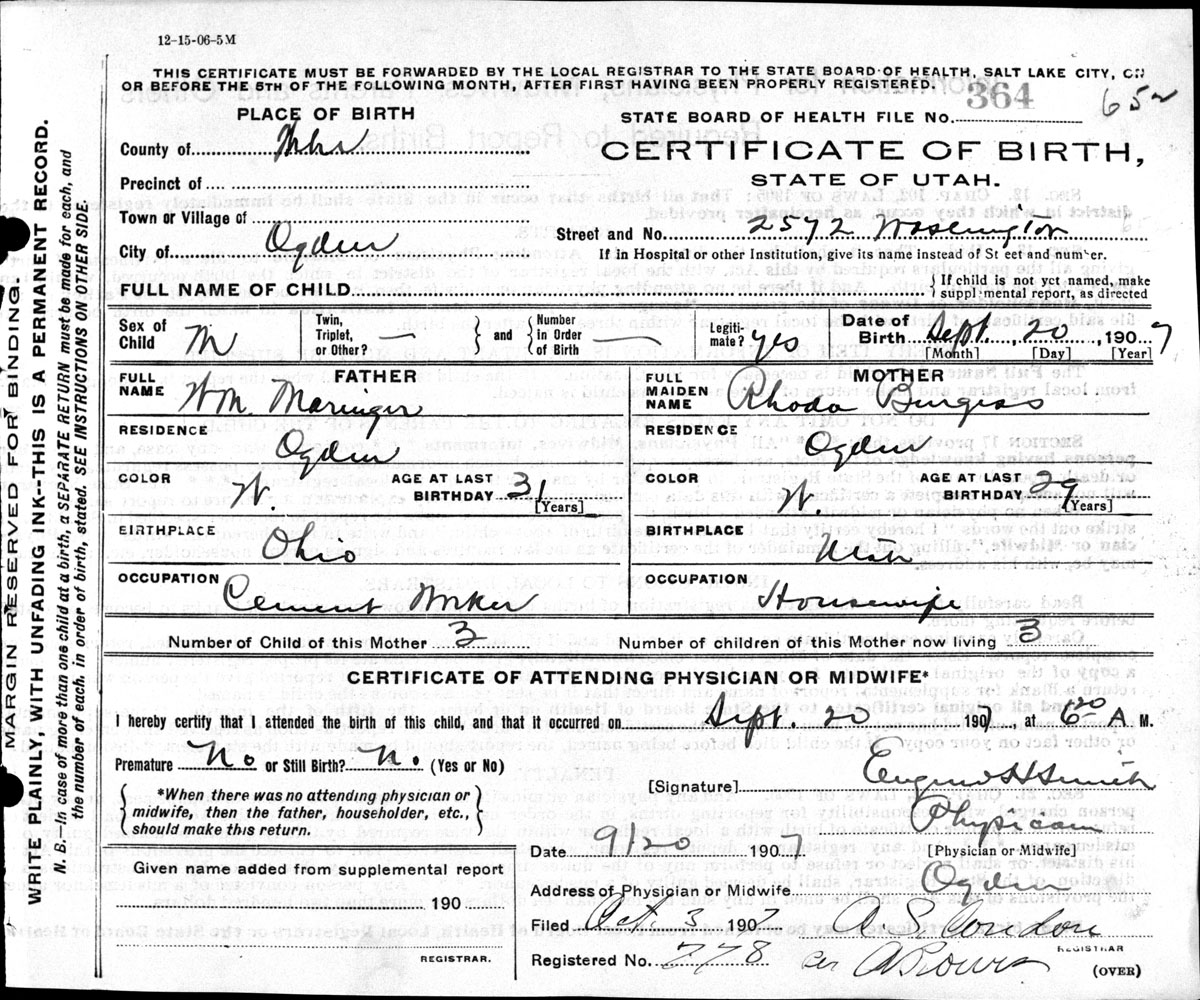 12-15-06-5M
THIS CERTIFICATE MUST BE FORWARDED BY THE LOCAL REGISTRAR TO THE STATE BOARD OF HEALTH, SALT LAKE CITY, ON
OR BEFORE THE 5TH OF THE FOLLOWING MONTH, AFTER FIRST HAVING BEEN PROPERLY REGISTERED.
PLACE OF BIRTH
STATE BOARD OF HEALTH FILE No. 364
County of
CERTIFICATE OF BIRTH,
Precinct of
STATE OF UTAH.
Town or Village of
City of Ogden
Street and No. 2572 Washington
If in Hospital or other Institution, give its name instead of St eet and number.
FULL NAME OF CHILD
If child is not yet named, make
suppl mental report, as directed
Sex of Child M
Twin, Triplet, or Other? —
and
Number in Order of Birth —
Legiti-mate? yes
Date of Birth Sept. 20, 1907
[Month] [Day] [Year]
FATHER
FULL NAME Wm. Maringer
RESIDENCE Ogden
COLOR W. AGE AT LAST BIRTHDAY 31 [Years]
BIRTHPLACE Ohio
OCCUPATION Cement Worker
MOTHER
FULL MAIDEN NAME Rhoda Burgess
RESIDENCE Ogden
COLOR W. AGE AT LAST BIRTHDAY 29 [Years]
BIRTHPLACE Utah
OCCUPATION Housewife
Number of Child of this Mother 3
Number of children of this Mother now living 3
CERTIFICATE OF ATTENDING PHYSICIAN OR MIDWIFE*
I hereby certify that I attended the birth of this child, and that it occurred on Sept. 20 1907, at 6 20 A M.
Premature No or Still Birth? No. (Yes or No)
*When there was no attending physician or
midwife, then the father, householder, etc.,
should make this return.
[Signature] Eugene H Smith
Physician
[Physician or Midwife]
Date 9/20 1907
Address of Physician or Midwife Ogden
Given name added from supplemental report
190
REGISTRAR.
Filed Oct. 3 1907
A S Condon
REGISTRAR
Registered No. 778
(OVER)
MARGIN RESERVED FOR BINDING
WRITE PLAINLY WITH UNFADING INK--THIS IS A PERMANENT RECORD.
N. B.—In case of more than one child at a birth, a SEPARATE RETURN must be made for each, and
the number of each, in order of birth, stated. SEE INSTRUCTIONS ON OTHER SIDE.